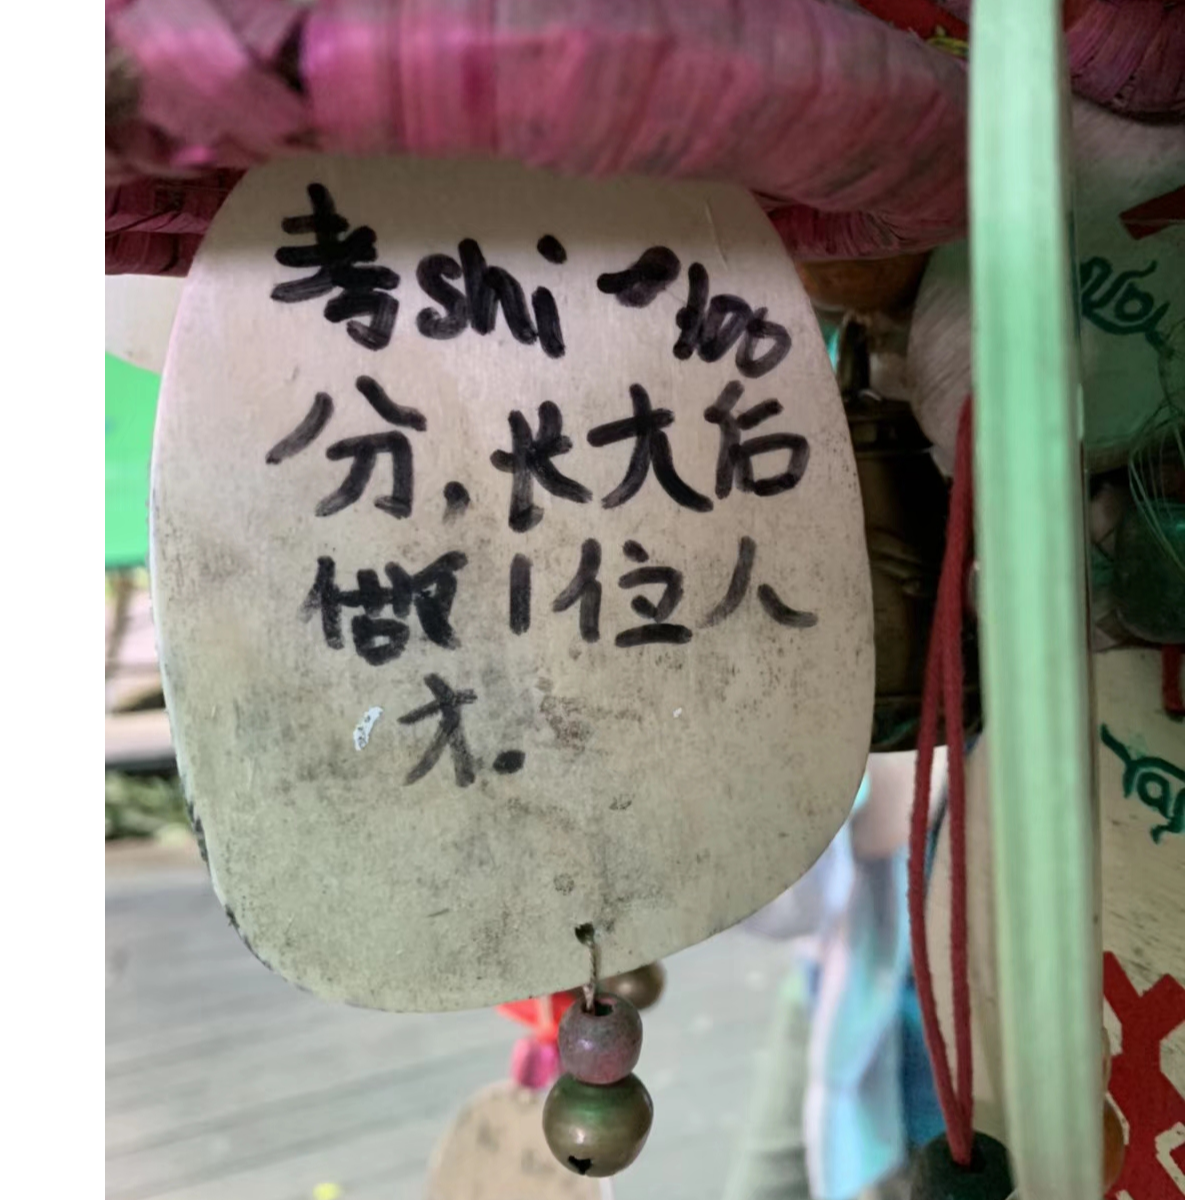 考shi 100
分，长大后
做1位人
才.